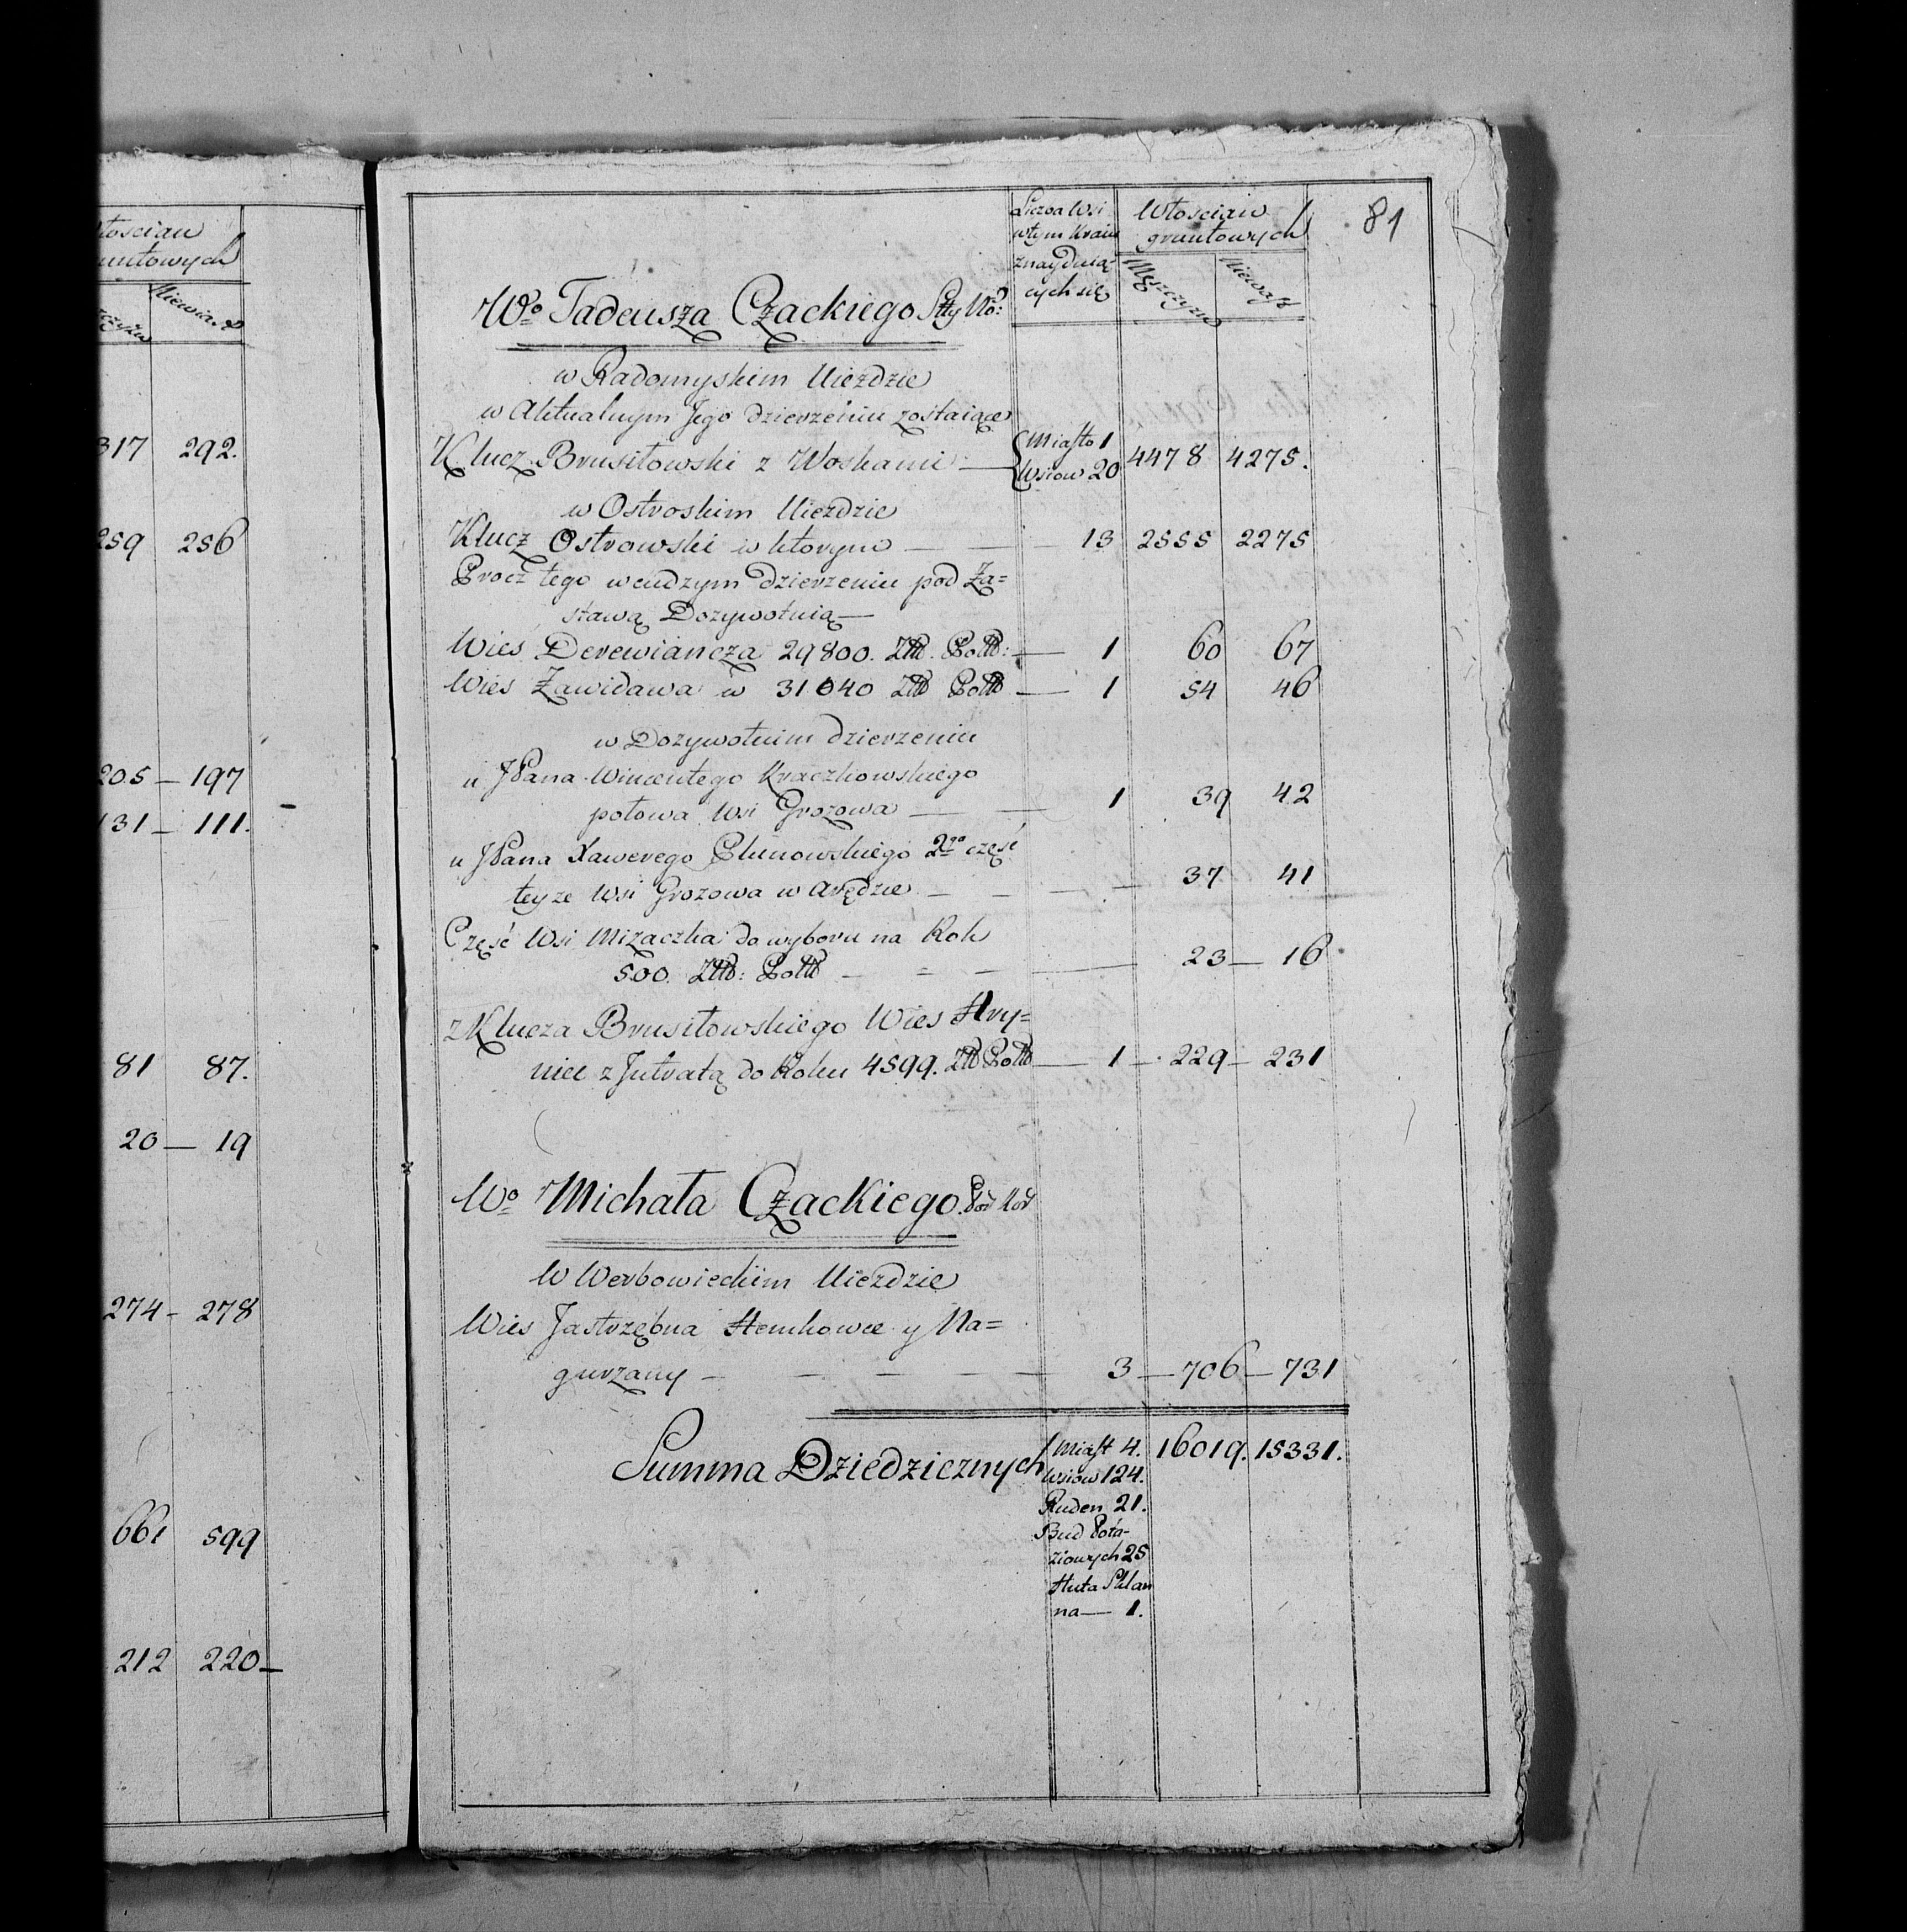 łościan
untowych
czyzn
Niewiast
317 292.
259 256
205 — 197
131 — 111.
81 87.
20 — 19
274 - 278
661 599
212 220 —
81
Liczba Wsi
w tym Kraiu
znayduią-
cych się
Włościan
gruntowych
Męszczyzn
Niewiast
Wo Tadeusza Czackiego Stty No:
w Radomyskim Uieździe
w Aktualnym Jego dzierzeniu zostaiące
Klucz Brusiłowski z Woskami — Miasto 1 4478 4275.
Wsiow 20
w Ostroskim Uieździe
Klucz Ostrowski w ktorym — — 13 2555 2275
Procz tego w cudzym dzierzeniu pod Za=
stawą Dozywotnią —
Wieś Derewiancza 29800. Złł. Polł: — 1 60 67
Wies Zawidawa w 31040 Złł Polł — 1 54 46
w Dozywotnim dzierzeniu
u JPana Wincentego Kraczkowskiego
połowa Wsi Grozowa — — 1 39 42
u JPana Xawerego 2go część
teyze Wsi Grozowa w Arędzie — — — 37 41
Część Wsi Mizaczka do wyboru na Rok
500. Złł: Polł — = — — 23 — 16
z Klucza Brusiłowskiego Wies Hry=
nice z Jutratą do Roku 4599. Złł Polł — 1 — 229 — 231
Wo Michała Czackiego Pod Kor
W Werbowieckim Uieździe
Wies Jastrzębna Hemkowce y Na=
gurzany — — — — — 3 — 706 — 731
Summa Dziedzicznych Miast 4. 16019. 15331.
Wsiow 124.
Ruden 21.
Bud Pota-
ziowych 25
Huta Sklan
na — 1.